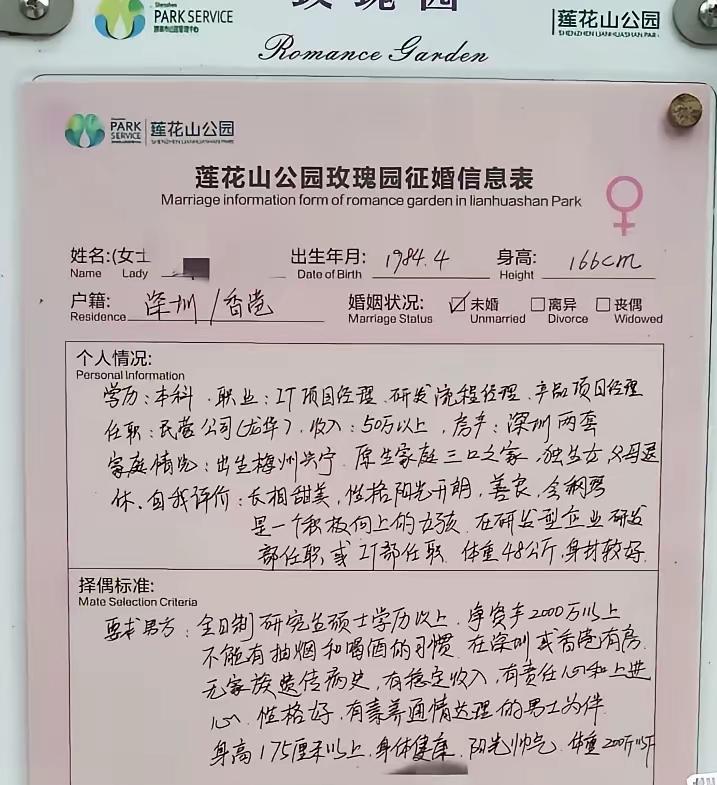 Shenzhen
PARK SERVICE
玫瑰园
Romance Garden
莲花山公园
SHENZHEN LIANHUASHAN PARK
PARK SERVICE
莲花山公园
SHENZHEN LIANHUASHAN PARK
莲花山公园玫瑰园征婚信息表
Marriage information form of romance garden in lianhuashan Park
姓名:(女士 出生年月: 1984.4 身高: 166cm
Name Lady Date of Birth Height
户籍: 深圳/香港 婚姻状况: ☑未婚 □离异 □丧偶
Residence Marriage Status Unmarried Divorce Widowed
个人情况:
Personal Information
学历:本科 . 职业:IT项目经理、研发流程经理、产品项目经理
任职:民营公司(龙华), 收入:50万以上, 房产:深圳两套
家庭情况:出生梅州兴宁 原生家庭三口之家, 独生女, 父母退
休. 自我评价:长相甜美, 性格阳光开朗, 善良,
是一个积极向上的女孩. 在研发型企业研发
部任职, 或IT部任职. 体重48公斤, 身材较好.
择偶标准:
Mate Selection Criteria
要求男方:全日制研究生硕士学历以上, 净资产2000万以上
不能有抽烟和喝酒的习惯. 在深圳或香港有房.
无家族遗传病史, 有稳定收入, 有责任心和上进
心. 性格好, 有素养通情达理的男士为伴.
身高175厘米以上, 身体健康, 阳光帅气. 体重200斤以下